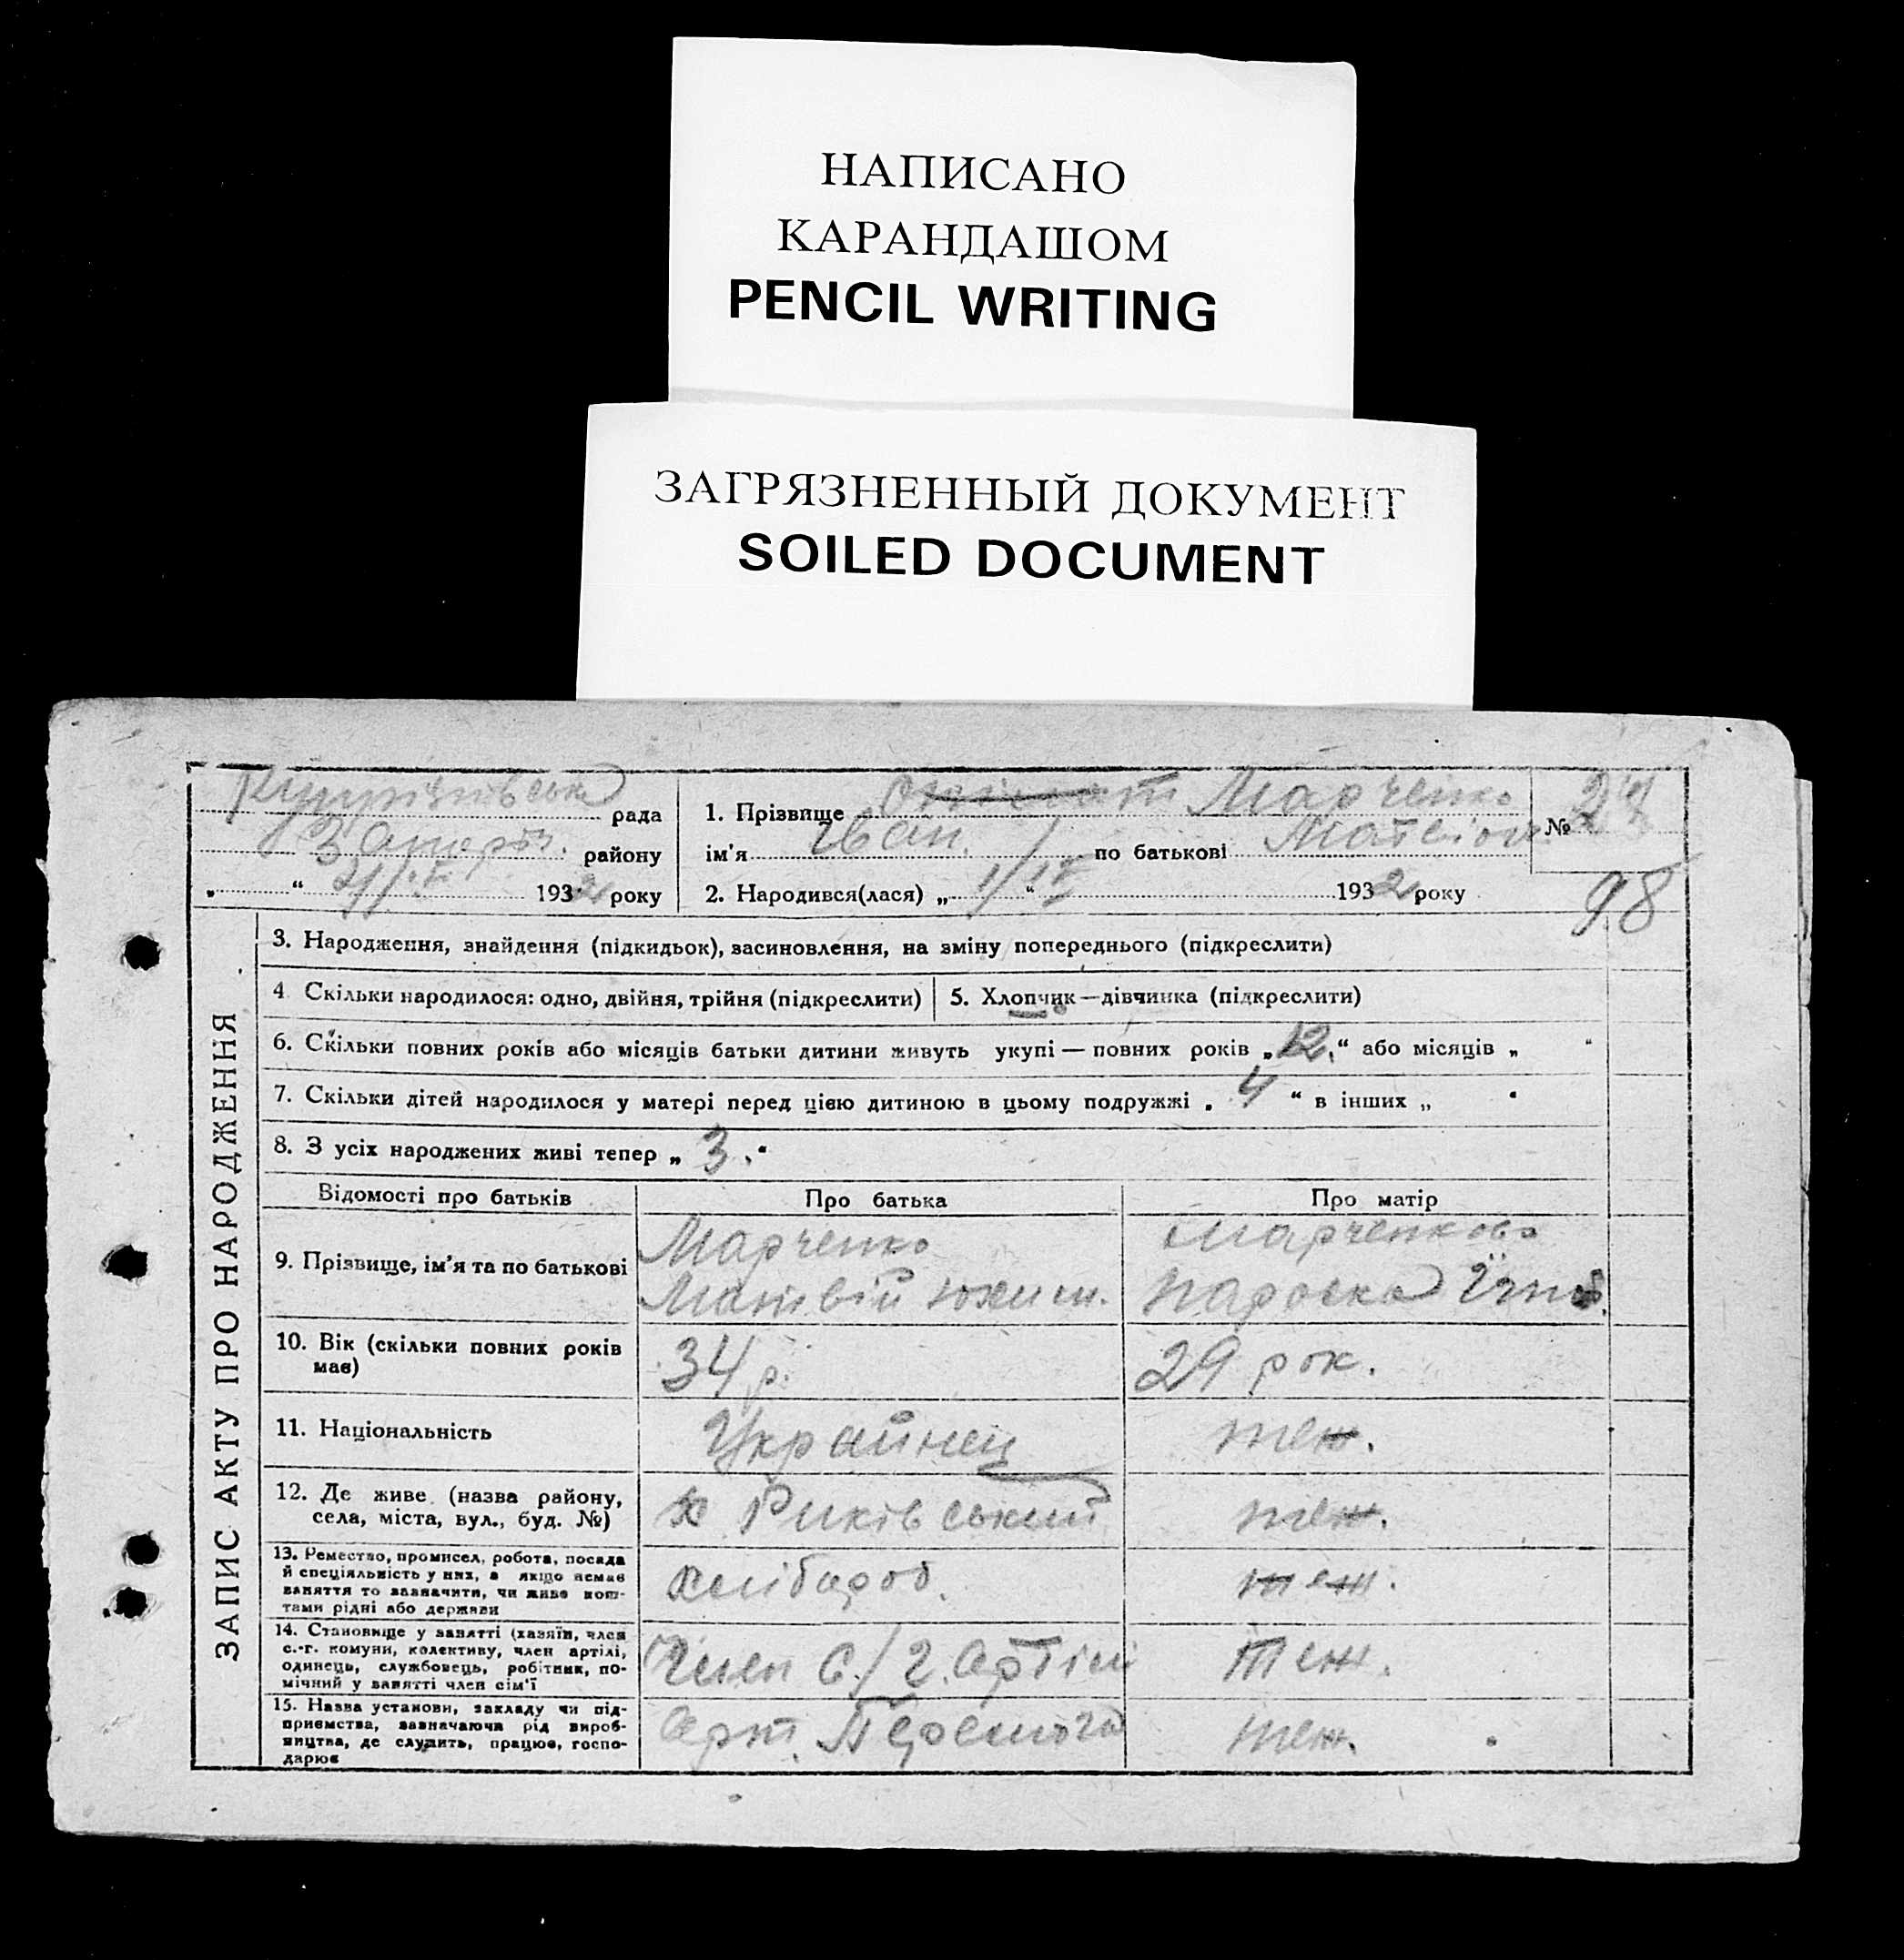 НАПИСАНО
КАРАНДАШОМ
PENCIL WRITING
ЗАГРЯЗНЕННЫЙ ДОКУМЕНТ
SOILED DOCUMENT
рада
району
„ “ 1932 року
1. Прізвище Марченко
ім'я Іван. по батькові
2. Народився(лася) „ “ 1932 року
№
98
ЗАПИС АКТУ ПРО НАРОДЖЕННЯ
3. Народження, знайдення (підкидьок), засиновлення, на зміну попереднього (підкреслити)
4 Скільки народилося: одно, двійня, трійня (підкреслити)
5. Хлопчик—дівчинка (підкреслити)
6. Скільки повних років або місяців батьки дитини живуть укупі — повних років „12.“ або місяців „ “
7. Скільки дітей народилося у матері перед цією дитиною в цьому подружжі „ 4 “ в інших „ “
8. З усіх народжених живі тепер „ 3. “
Відомості про батьків Про батька Про матір
9. Прізвище, ім'я та по батькові
Марченко
Матвій
Марченкова
Параска
10. Вік (скільки повних років
має)
34 р.
29 рок.
11. Національність
Украйнец
теж.
12. Де живе (назва району,
села, міста, вул., буд. №)
х Риківський
теж.
13. Ремество, промисел, робота, посада
й спеціяльність у них, а якщо немає
заняття то зазначити, чи живе кош-
тами рідні або держави
хлібороб.
теж.
14. Становище у занятті (хазяїн, член
с.-г. комуни, колективу, член артілі,
одинець, службовець, робітник, по-
мічний у занятті член сім'ї
Член С./г. артіли
теж.
15. Назва установи, закладу чи під-
приємства, зазначаючи рід вироб-
ництва, де служить, працює, госпо-
дарює
Арт. Перемога
теж.